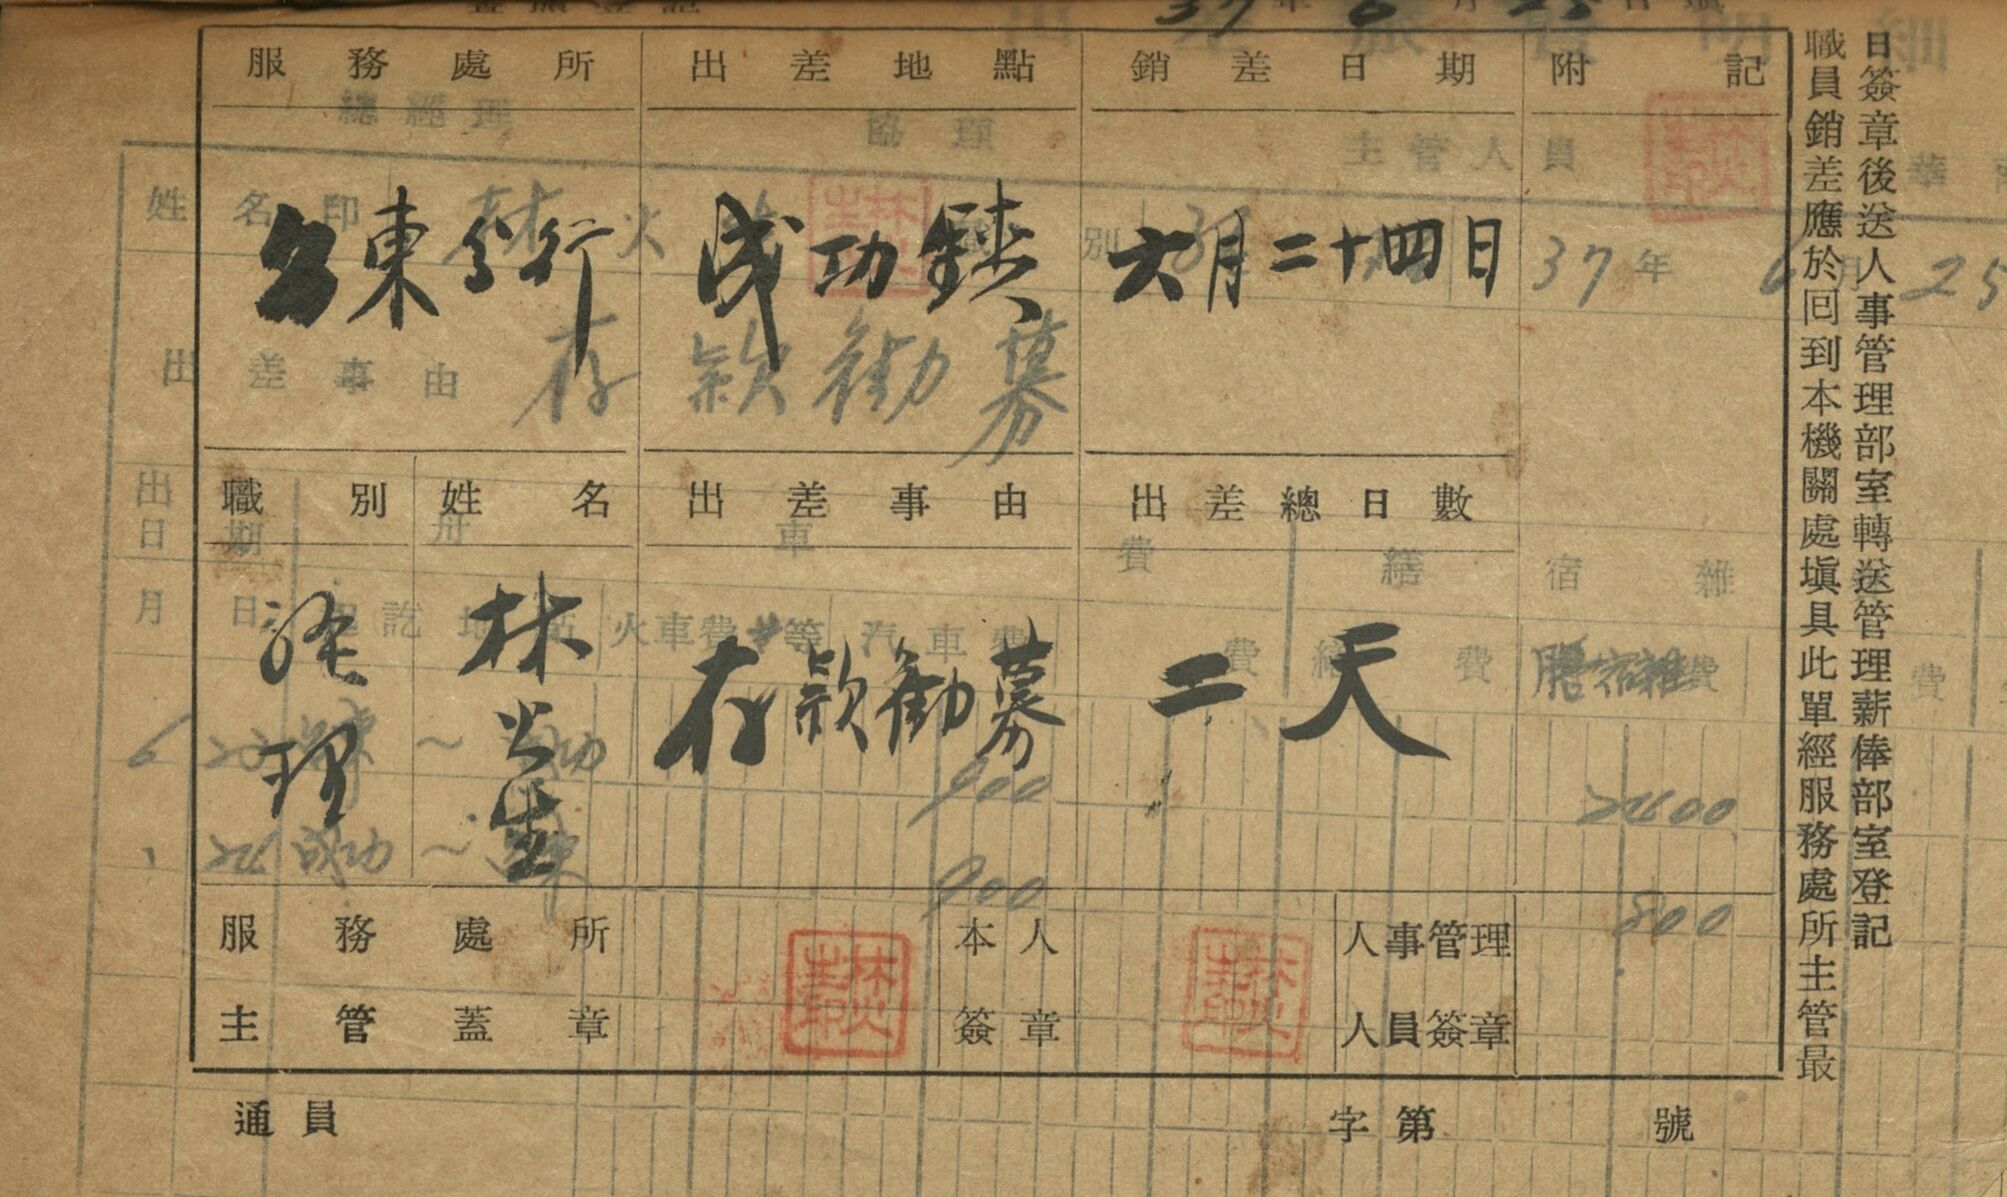 服務處所 出差地點 銷差日期 附記
台東分行 成功鎮 六月二十四日
職別 姓名 出差事由 出差總日數
經理 林火生 存款勸募 二天
服務處所主管蓋章 本人簽章 人事管理人員簽章
通員 字第 號
日簽章後送人事管理部室轉送管理薪俸部室登記
職員銷差應於回到本機關處塡具此單經服務處所主管最
總經理 協理 主管人員
姓名印 別 37年6月25
出差事由 存款勸募
出 舟車費 膳宿雜
日期
月日 起訖地點 火車費 等 汽車費 費 膳宿雜費
6 23 台東~成功 900 2400
24 成功~台東 900 800